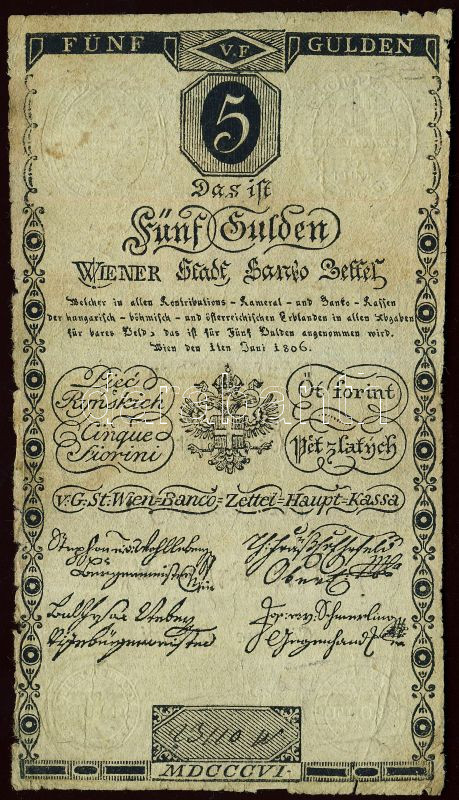 FÜNF V.F GULDEN
5
Das ist
Fünf Gulden
WIENER Stadt Banco Zettel
Welcher in allen Kontributions-Kameral-und Banko-Kassen
der hungarisch-böhmisch-und österreichischen Erblanden in allen Abgaben
für bares Geld, das ist für Fünf Gulden angenommen wird.
Wien den 1ten Juni 1806.
Pięć Ryńskich
Öt forint
Cinque Fiorini
Pět zlatých
v.G.St.Wien=Banco=Zettel=Haupt=Kassa
Stephan
Burgermeister
Vizebürgermeister
MDCCCVI
darabanth